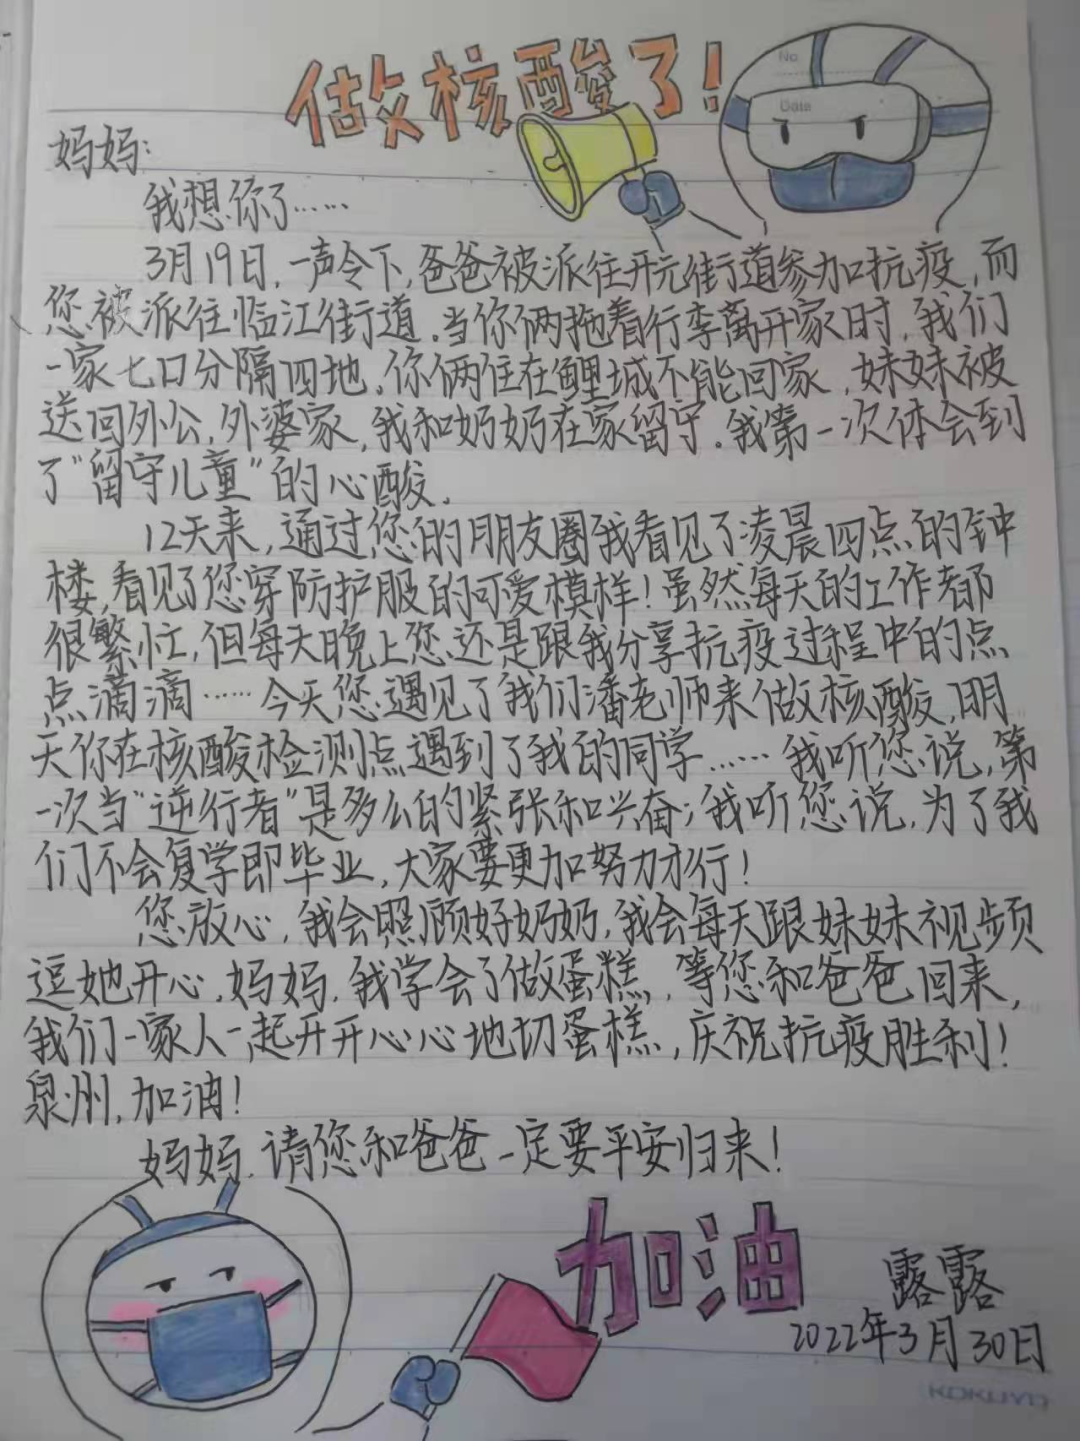 做核酸了!
No
Date
妈妈:
我想你了……
3月19日,一声令下,爸爸被派往开元街道参加抗疫,而
您被派往临江街道.当你俩拖着行李离开家时,我们
一家七口分隔四地.你俩住在鲤城不能回家,妹妹被
送回外公,外婆家,我和奶奶在家留守.我第一次体会到
了“留守儿童”的心酸.
12天来,通过您的朋友圈我看见了凌晨四点的钟
楼,看见了您穿防护服的可爱模样!虽然每天的工作都
很繁忙,但每天晚上您还是跟我分享抗疫过程中的点
点滴滴……今天您遇见了我们潘老师来做核酸,明
天你在核酸检测点遇到了我的同学……我听您说,第
一次当“逆行者”是多么的紧张和兴奋;我听您说,为了我
们不会复学即毕业,大家要更加努力才行!
您放心,我会照顾好奶奶,我会每天跟妹妹视频
逗她开心.妈妈.我学会了做蛋糕,等您和爸爸回来,
我们一家人一起开开心心地切蛋糕,庆祝抗疫胜利!
泉州,加油!
妈妈.请您和爸爸一定要平安归来!
加油
露露
2022年3月30日
KOKUYO